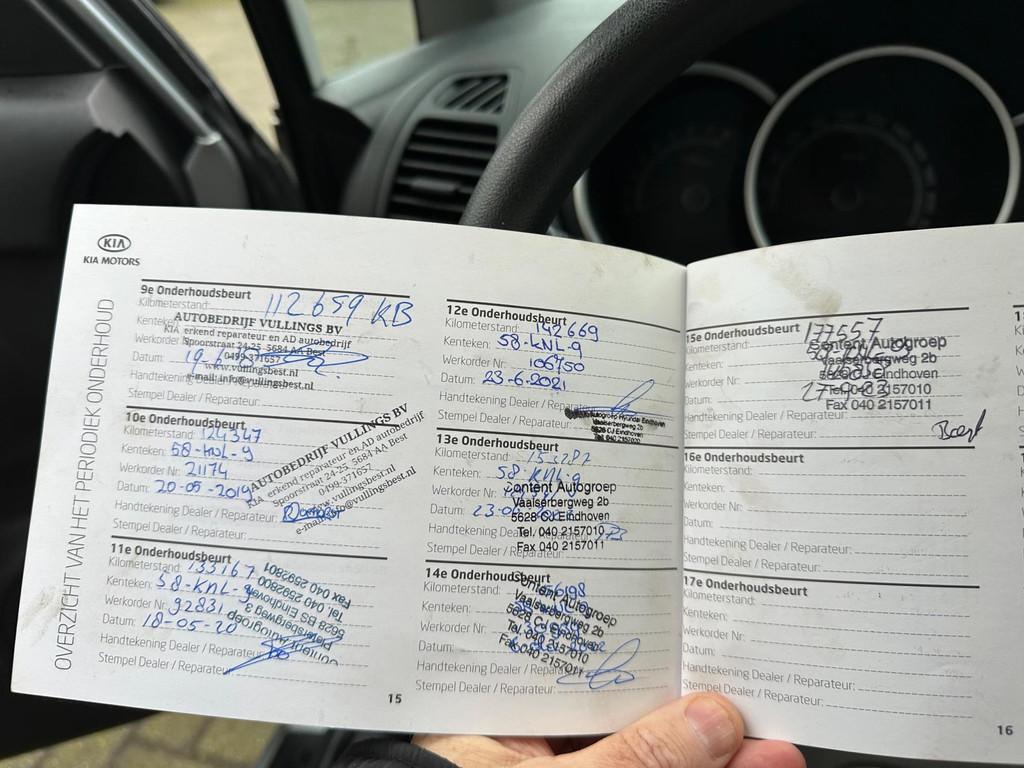 KIA
KIA MOTORS
OVERZICHT VAN HET PERIODIEK ONDERHOUD
9e Onderhoudsbeurt
Kilometerstand: 112659 KB
AUTOBEDRIJF VULLINGS BV
KIA erkend reparateur en AD autobedrijf
Spoorstraat 24-25 5684 AA Best
0499-371657
www.vullingsbest.nl
e-mail: info@vullingsbest.nl
Werkorder
Datum:
Handtekening Dealer
Stempel Dealer / Reparateur:
10e Onderhoudsbeurt
Kilometerstand: 124347
Kenteken:
Werkorder Nr: 21174
Datum: 20-05-2019
Handtekening Dealer / Reparateur:
Stempel Dealer / Reparateur:
AUTOBEDRIJF VULLINGS BV
KIA erkend reparateur en AD autobedrijf
Spoorstraat 24-25 5684 AA Best
0499-371657
www.vullingsbest.nl
e-mail: info@vullingsbest.nl
11e Onderhoudsbeurt
Kilometerstand: 133767
Kenteken: 58-KNL-9
Werkorder Nr: 92831
Datum: 18-05-20
Handtekening Dealer / Reparateur:
Stempel Dealer / Reparateur:
Content Autogroep
5628 BS Eindhoven
Tel. 040 2592800
Fax 040 2592801
15
12e Onderhoudsbeurt
Kilometerstand: 142669
Kenteken: 58-KNL-9
Werkorder Nr: 106750
Datum: 23-6-2021
Handtekening Dealer / Reparateur:
Stempel Dealer / Reparateur:
Autogroep Hyundai Eindhoven
Vaalserbergweg 2b
5628 CJ Eindhoven
Tel. 040 2157010
13e Onderhoudsbeurt
Kilometerstand: 153282
Kenteken: 58-KNL-9
Werkorder Nr:
Datum:
Handtekening Dealer
Stempel Dealer / Reparateur:
Content Autogroep
Vaalserbergweg 2b
5628 CJ Eindhoven
Tel. 040 2157010
Fax 040 2157011
14e Onderhoudsbeurt
Kilometerstand:
Kenteken:
Werkorder Nr:
Datum:
Handtekening Dealer / Reparateur:
Stempel Dealer / Reparateur:
Content Autogroep
Vaalserbergweg 2b
5628 CJ Eindhoven
Tel. 040 2157010
Fax 040 2157011
15e Onderhoudsbeurt
Kilometerstand: 177557
Kenteken:
Werkorder Nr:
Datum:
Handtekening Dealer / Reparateur:
Stempel Dealer / Reparateur:
Content Autogroep
Vaalserbergweg 2b
5628 CJ Eindhoven
Tel. 040 2157010
Fax 040 2157011
16e Onderhoudsbeurt
Kilometerstand:
Kenteken:
Werkorder Nr:
Datum:
Handtekening Dealer / Reparateur:
Stempel Dealer / Reparateur:
17e Onderhoudsbeurt
Kilometerstand:
Kenteken:
Werkorder Nr:
Datum:
Handtekening Dealer / Reparateur:
Stempel Dealer / Reparateur:
16